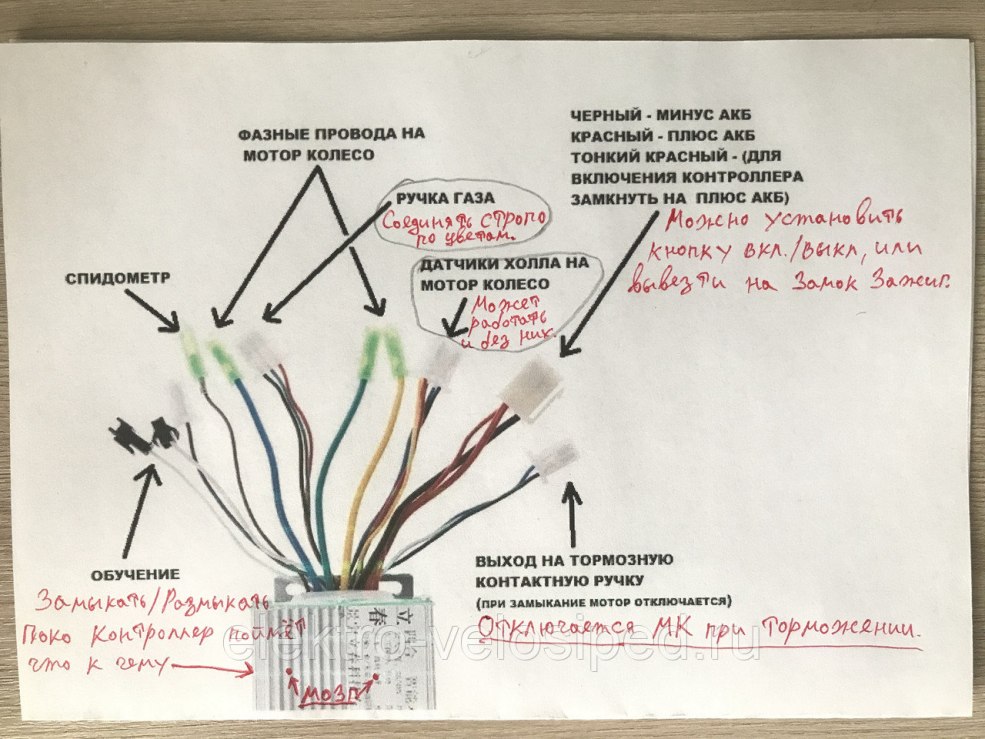 ФАЗНЫЕ ПРОВОДА НА
МОТОР КОЛЕСО
ЧЕРНЫЙ - МИНУС АКБ
КРАСНЫЙ - ПЛЮС АКБ
ТОНКИЙ КРАСНЫЙ - (ДЛЯ
ВКЛЮЧЕНИЯ КОНТРОЛЛЕРА
ЗАМКНУТЬ НА ПЛЮС АКБ)
Можно установить
кнопку вкл./выкл, или
вывезти на Замок Зажиг.
РУЧКА ГАЗА
Соединять строго
по цветам.
СПИДОМЕТР
ДАТЧИКИ ХОЛЛА НА
МОТОР КОЛЕСО
Может
работать
и без них.
ОБУЧЕНИЕ
Замыкать/Размыкать
Поко контроллер поймёт
что к чему
МОЗГ
ВЫХОД НА ТОРМОЗНУЮ
КОНТАКТНУЮ РУЧКУ
(ПРИ ЗАМЫКАНИЕ МОТОР ОТКЛЮЧАЕТСЯ)
Отключается МК при Торможении.
立
春
elektro-velosiped.ru